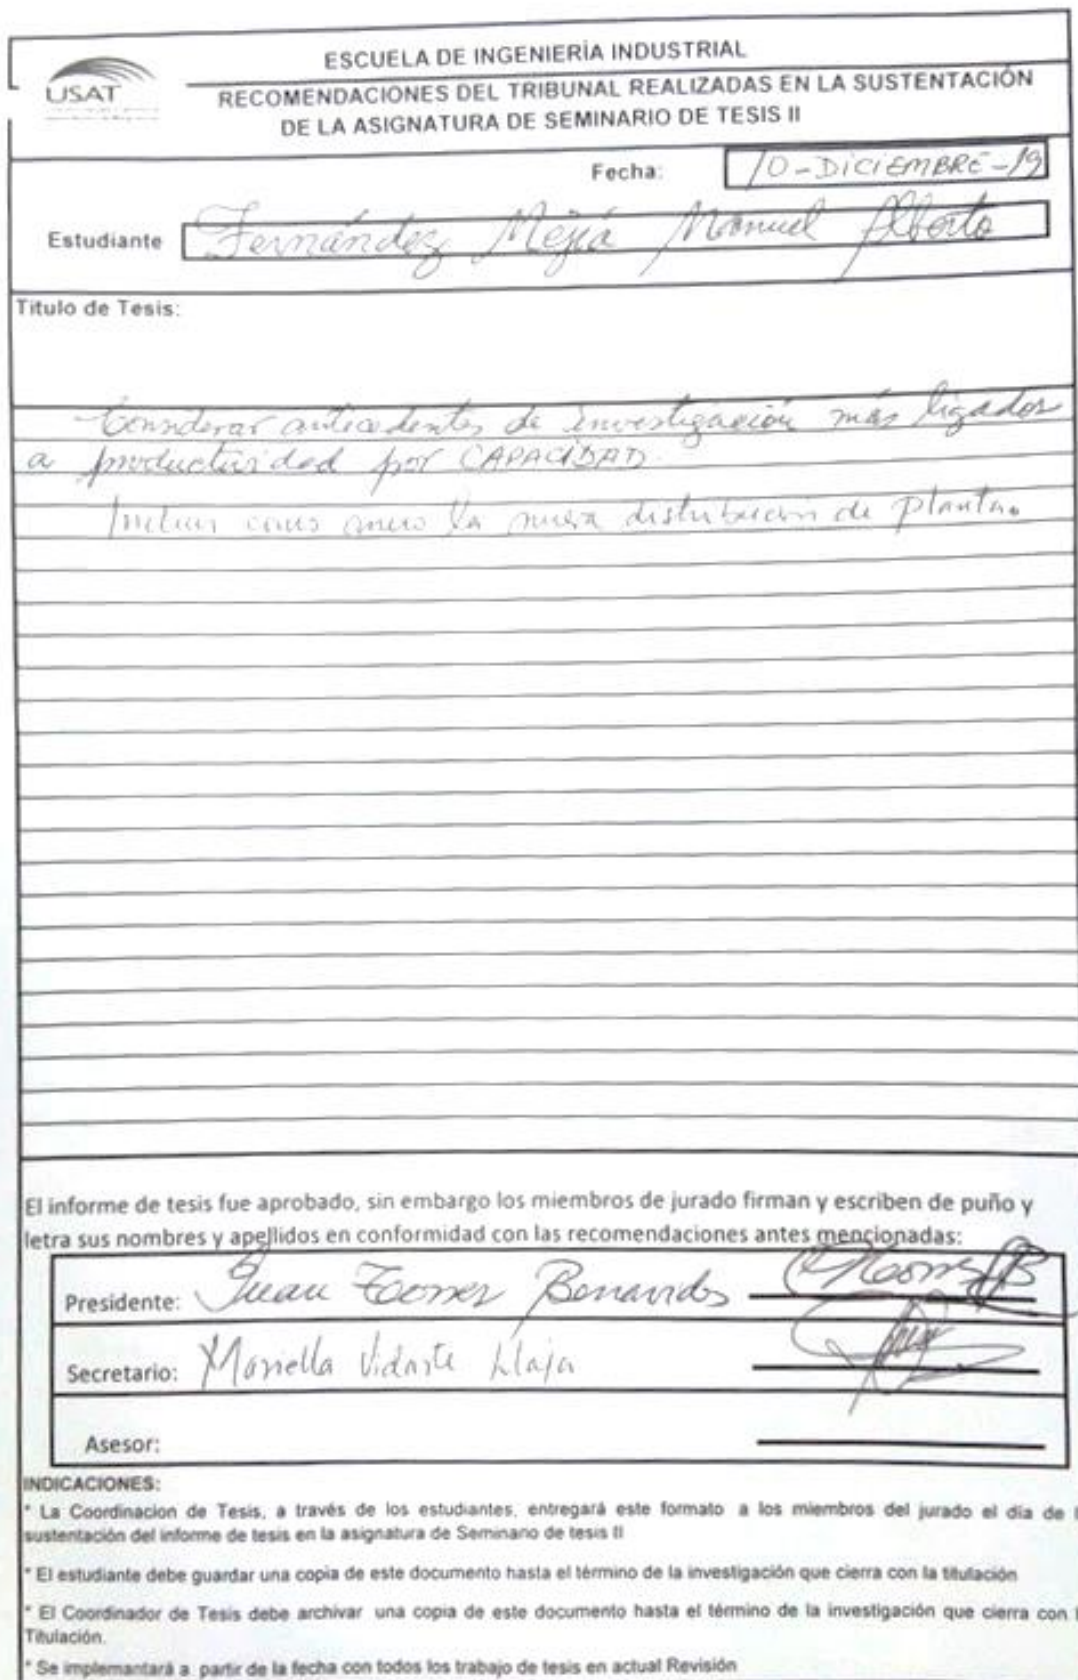 USAT
ESCUELA DE INGENIERÌA INDUSTRIAL
RECOMENDACIONES DEL TRIBUNAL REALIZADAS EN LA SUSTENTACIÓN
DE LA ASIGNATURA DE SEMINARIO DE TESIS II
Fecha: 10-DICIEMBRE-19
Estudiante Fernández Mejía Manuel Alberto
Titulo de Tesis:
Considerar antecedentes de investigación más ligados
a productividad por CAPACIDAD.
Incluir como anexo la nueva distribución de planta.
El informe de tesis fue aprobado, sin embargo los miembros de jurado firman y escriben de puño y
letra sus nombres y apellidos en conformidad con las recomendaciones antes mencionadas:
Presidente: Juan Torres Benavides
Secretario: Mariella Vidarte Llaja
Asesor:
INDICACIONES:
* La Coordinacion de Tesis, a través de los estudiantes, entregará este formato a los miembros del jurado el día de l
sustentación del informe de tesis en la asignatura de Seminario de tesis II
* El estudiante debe guardar una copia de este documento hasta el término de la investigación que cierra con la titulación
* El Coordinador de Tesis debe archivar una copia de este documento hasta el término de la investigación que cierra con l
Titulación.
* Se implemantará a partir de la fecha con todos los trabajo de tesis en actual Revisión